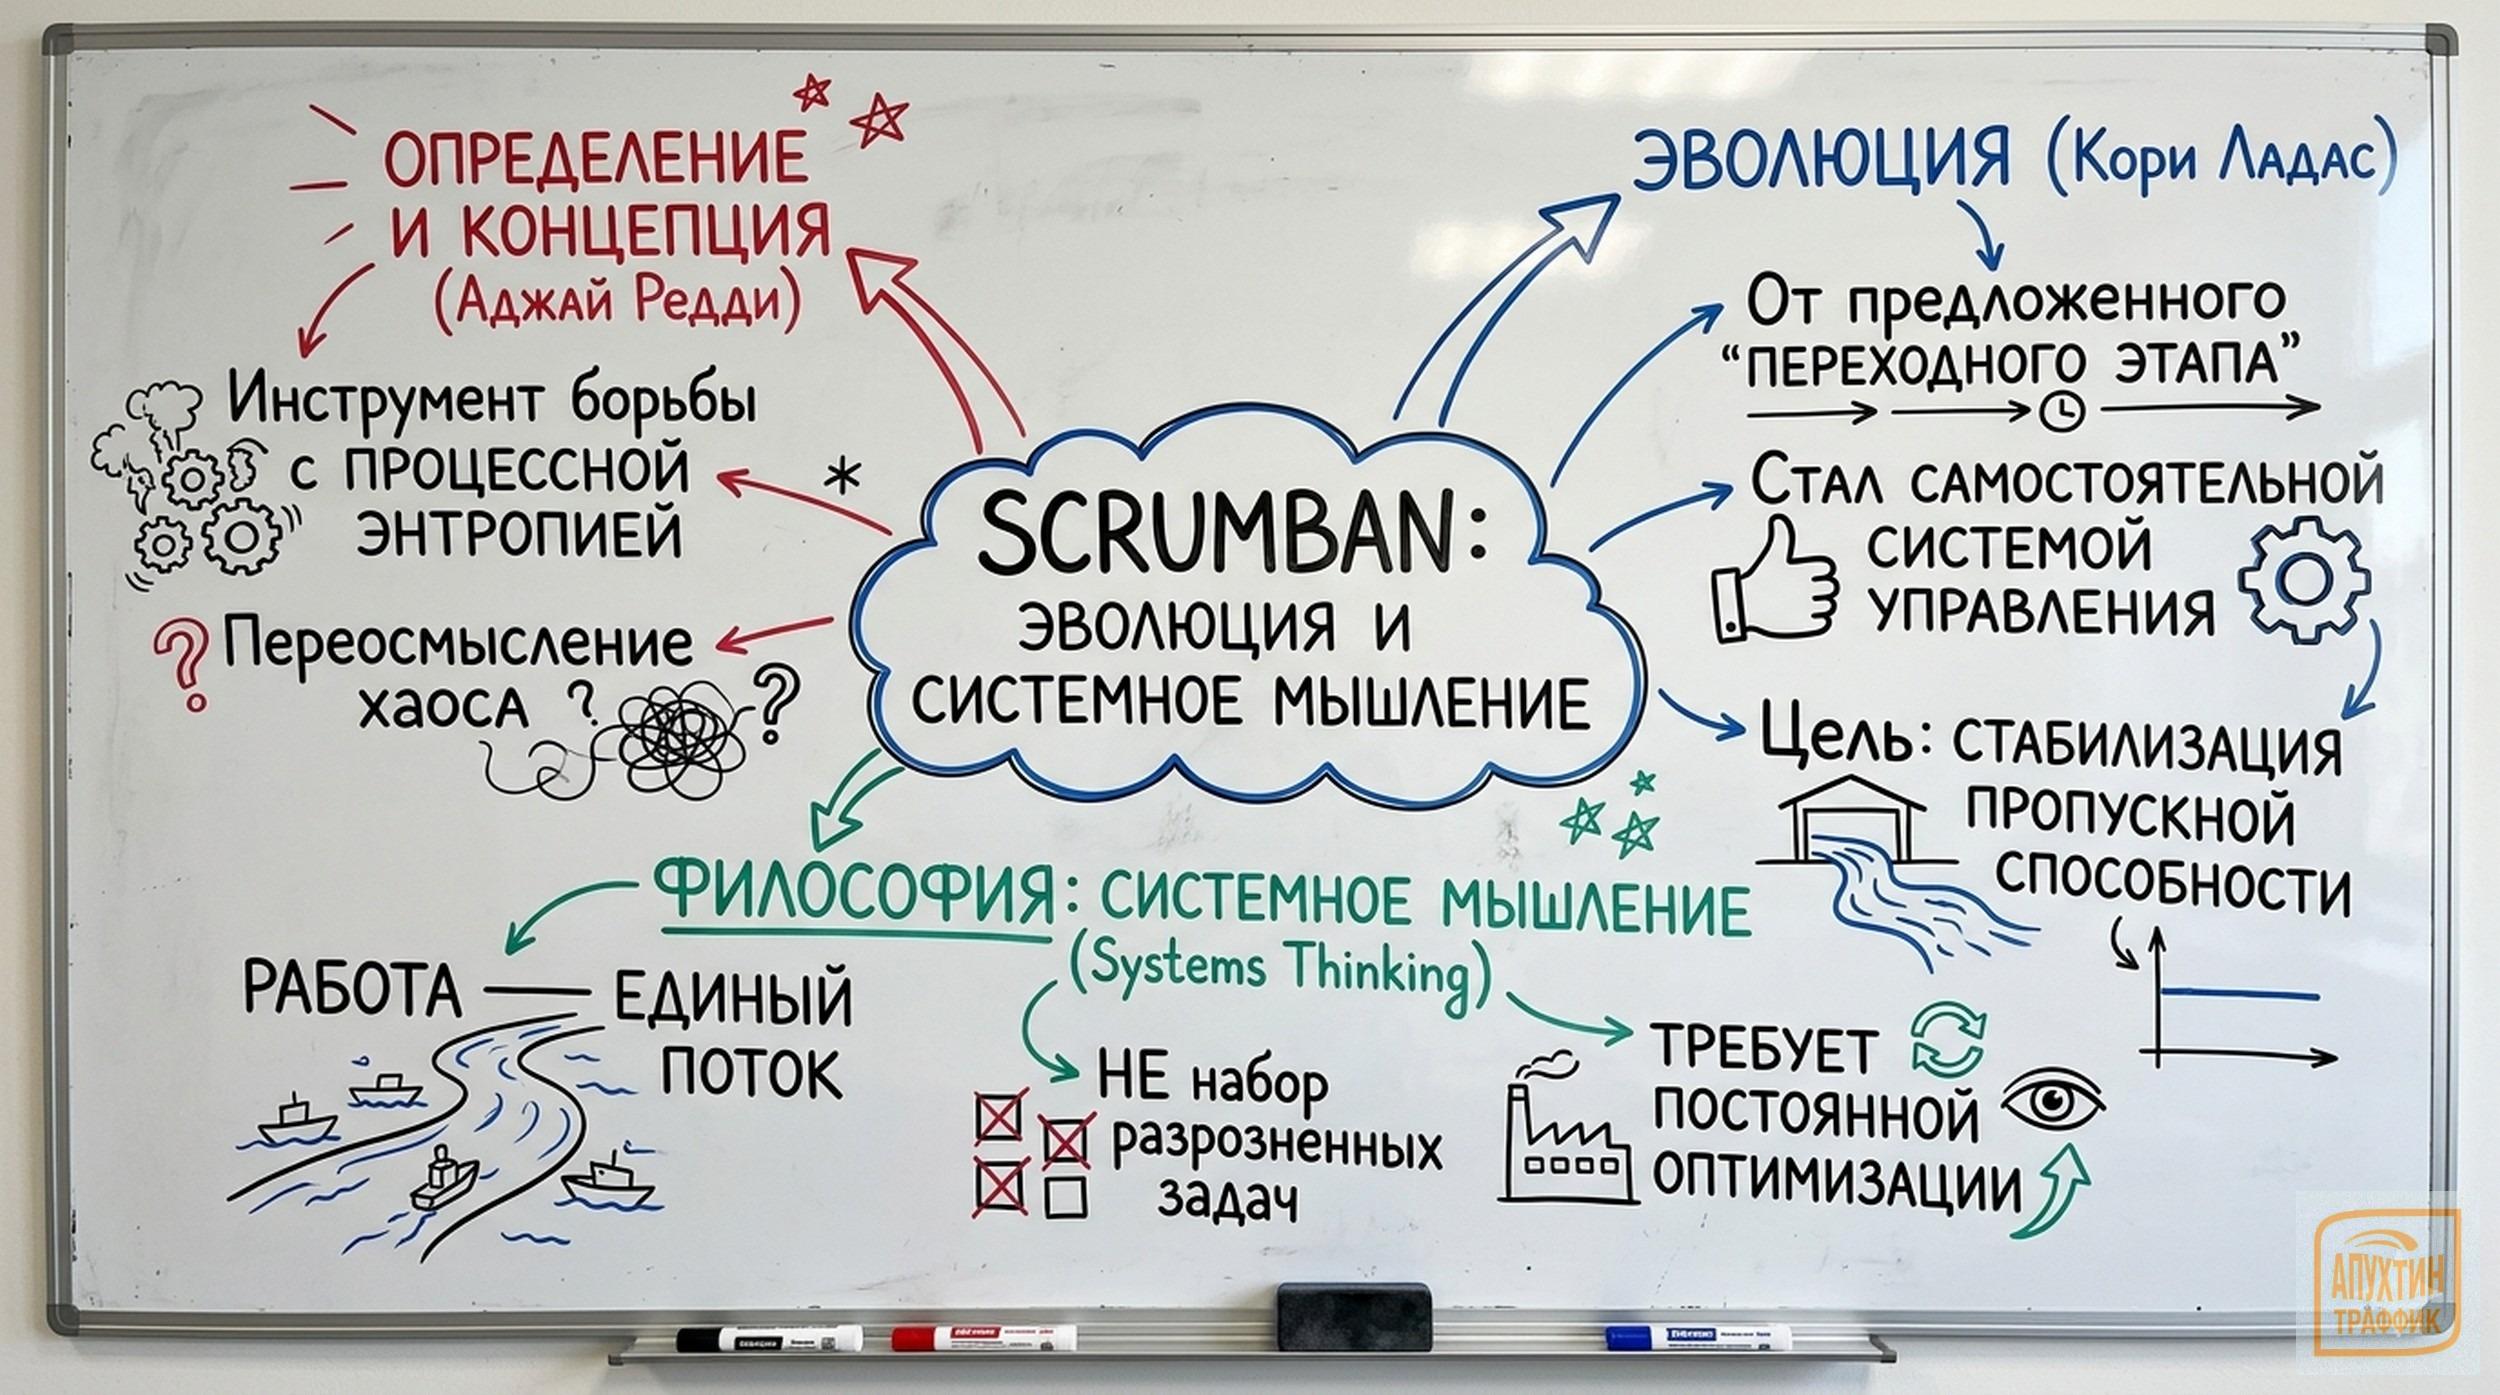 ОПРЕДЕЛЕНИЕ
И КОНЦЕПЦИЯ
(Аджай Редди)
Инструмент борьбы
с ПРОЦЕССНОЙ
ЭНТРОПИЕЙ
Переосмысление
хаоса
SCRUMBAN:
ЭВОЛЮЦИЯ И
СИСТЕМНОЕ МЫШЛЕНИЕ
ЭВОЛЮЦИЯ (Кори Ладас)
От предложенного
“ПЕРЕХОДНОГО ЭТАПА”
Стал САМОСТОЯТЕЛЬНОЙ
СИСТЕМОЙ
УПРАВЛЕНИЯ
Цель: СТАБИЛИЗАЦИЯ
ПРОПУСКНОЙ
СПОСОБНОСТИ
ФИЛОСОФИЯ: СИСТЕМНОЕ МЫШЛЕНИЕ
(Systems Thinking)
РАБОТА — ЕДИНЫЙ
ПОТОК
НЕ набор
разрозненных
задач
ТРЕБУЕТ
ПОСТОЯННОЙ
ОПТИМИЗАЦИИ
АПУХТИН
ТРАФФИК